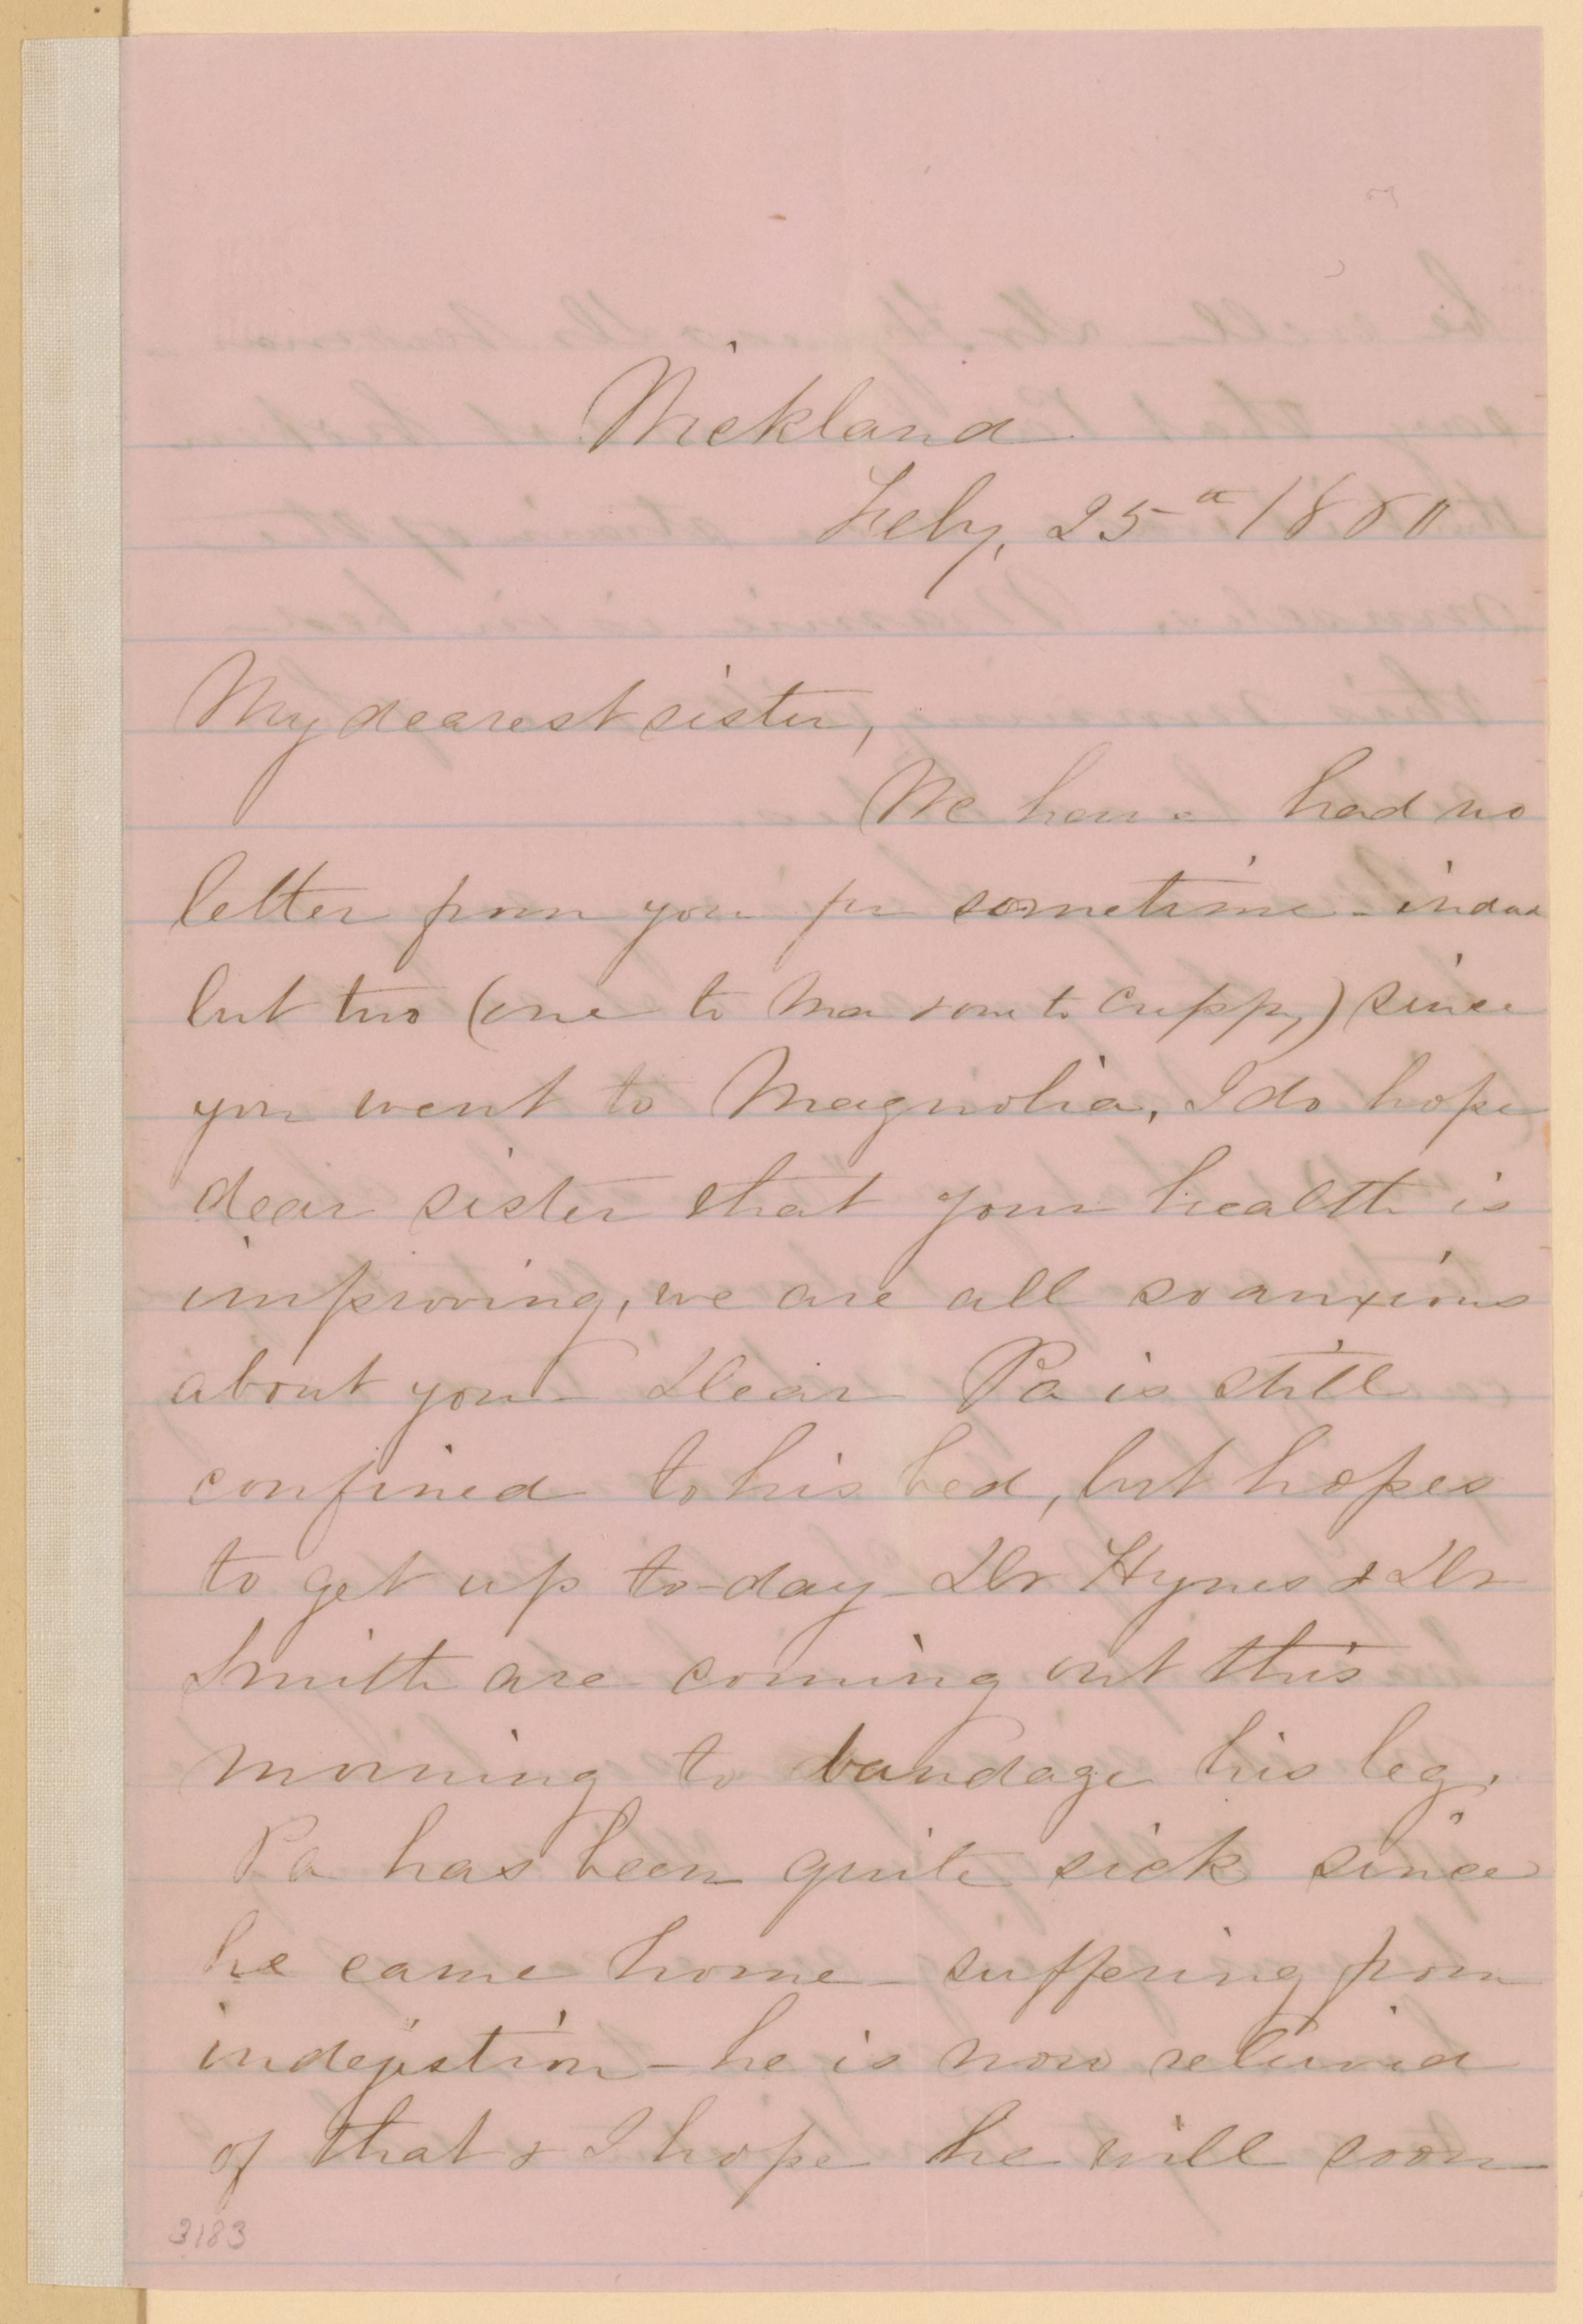 Wickland
Feby, 25th 1880
My dearest sister,
We have had no
letter from you for sometime - indeed
but two (one to Ma & one to Cuppy,) since
you went to Magnolia, I do hope
dear sister that your health is
improving, we are all so anxious
about you - Dear Pa is still
confined to his bed, but hopes
to get up to-day - Dr Hynes & Dr
Smith are coming out this
morning to bandage his leg.
Pa has been quite sick since
he came home - suffering from
indejestion - he is now relieved
of that & I hope he will soon
3183